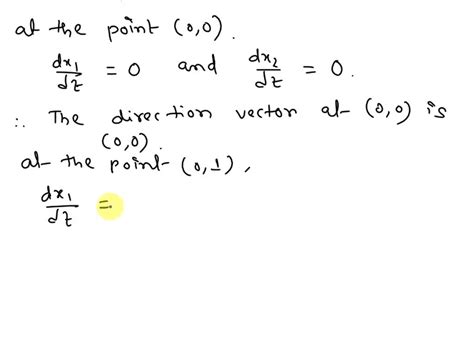 at the point (0,0).
dx₁/dz = 0 and dx₂/dz = 0.
∴ The direction vector at (0,0) is
(0,0).
at the point (0,1),
dx₁/dz =